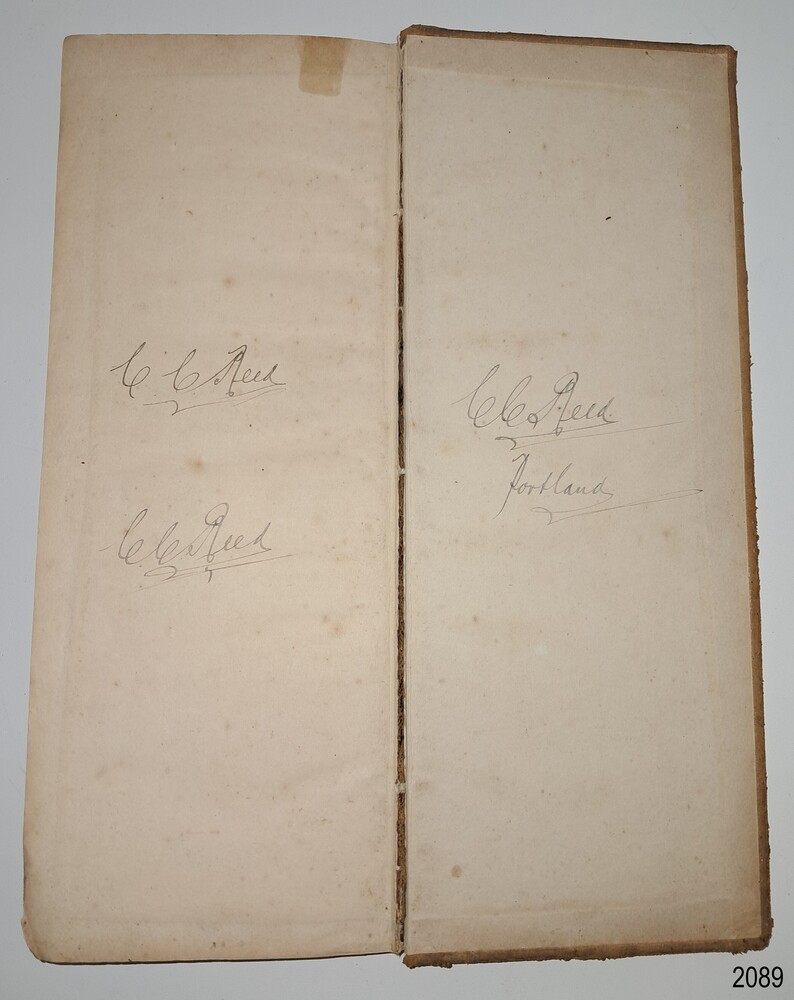 C C Reed
C C Reed
C C Reed
Portland
2089